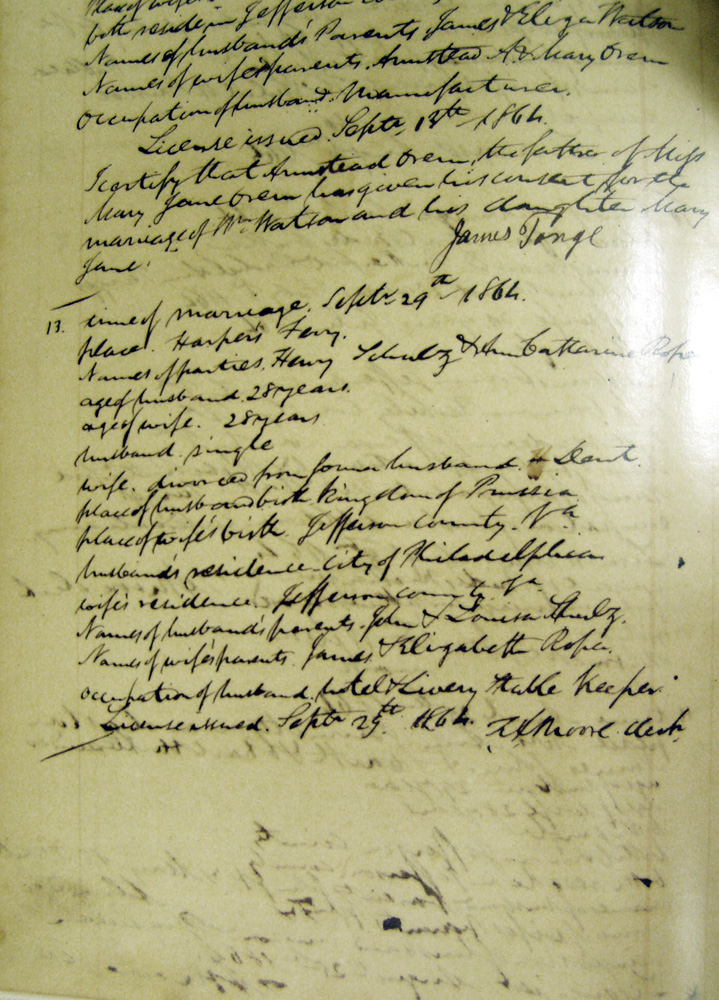 both reside in Jefferson
Names of husband's Parents James & Eliza Watson
Names of wife's parents. Armstead A & Mary Orem
occupation of husband. Manufacturer.
License issued. Septr, 13th 1864.
I certify that Armstead Orem, the father of Miss
Mary Jane Orem has given his consent for the
marriage of Wm Watson and his daughter Mary
Jane.
James Tonge
13. time of marriage. Septr 29th 1864.
place. Harper's Ferry.
Names of parties. Henry Schulz & Ann Catharine Roper
age of husband. 28 years.
age of wife. 28 years
husband. single
wife. divorced from former husband Dent.
place of husband birth Kingdom of Prussia
place of wife's birth. Jefferson county. Va
husband's residence City of Philadelphia
wife's residence. Jefferson county. Va
Names of husband's parents. John & Louisa Shulz.
Names of wife's parents. James & Elizabeth Roper.
occupation of husband. hotel & Livery Stable Keeper.
License issued. Septr 29th 1864. Moore clerk